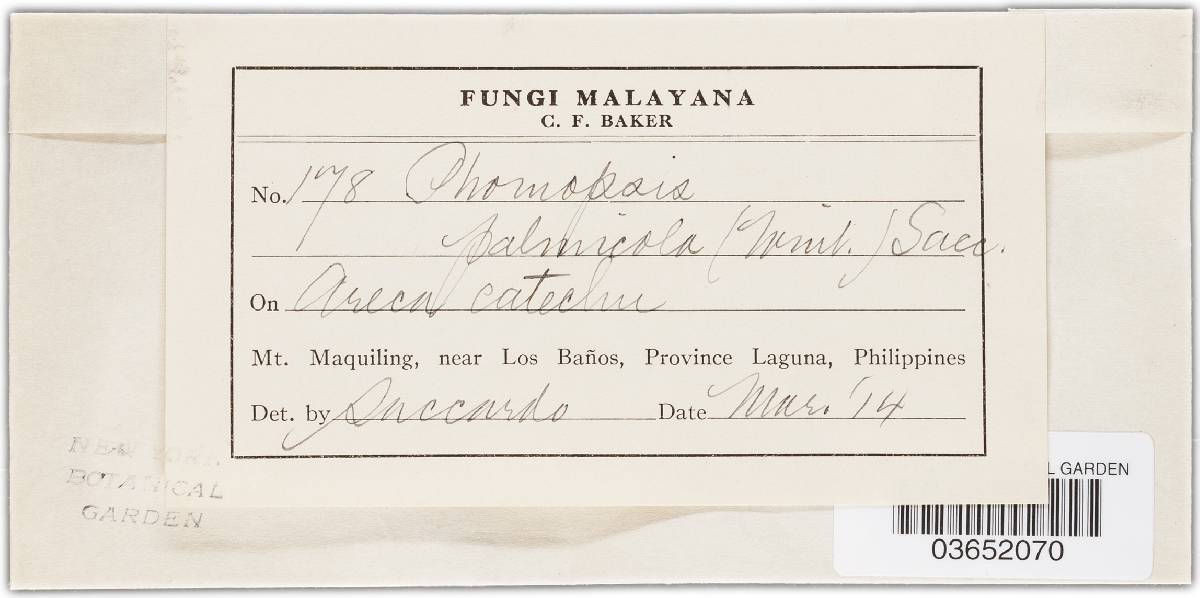 FUNGI MALAYANA
C. F. BAKER
No. 178 Phomopsis
palmicola (Wint.) Sacc.
On Areca catechu
Mt. Maquiling, near Los Baños, Province Laguna, Philippines
Det. by Saccardo Date Mar. '14
NEW YORK
BOTANICAL
GARDEN
L GARDEN
03652070